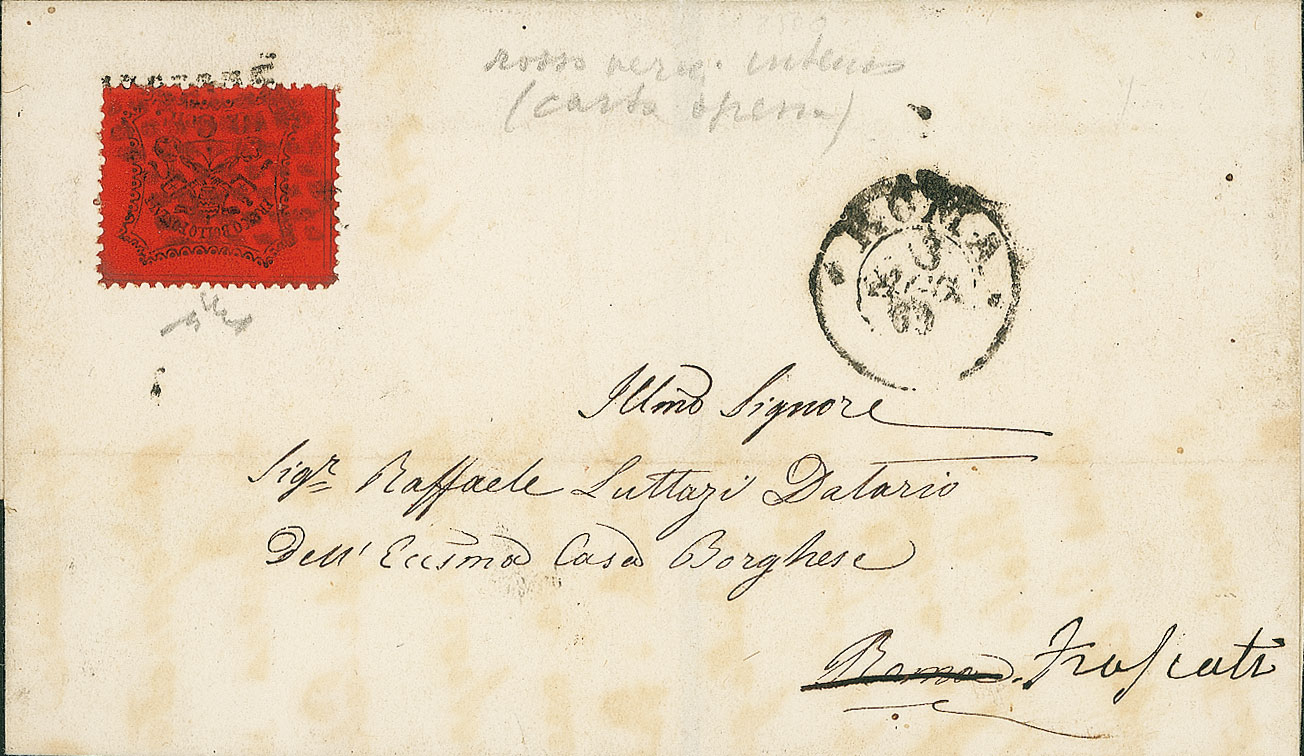 rosso verm. intenso
(carta spessa)
ROMA
3
69
Illmo Signore
Sigr. Raffaele Luttazi Datario
Dell' Eccsma Casa Borghese
Roma. Frascati
FRANCO BOLLO POSTALE